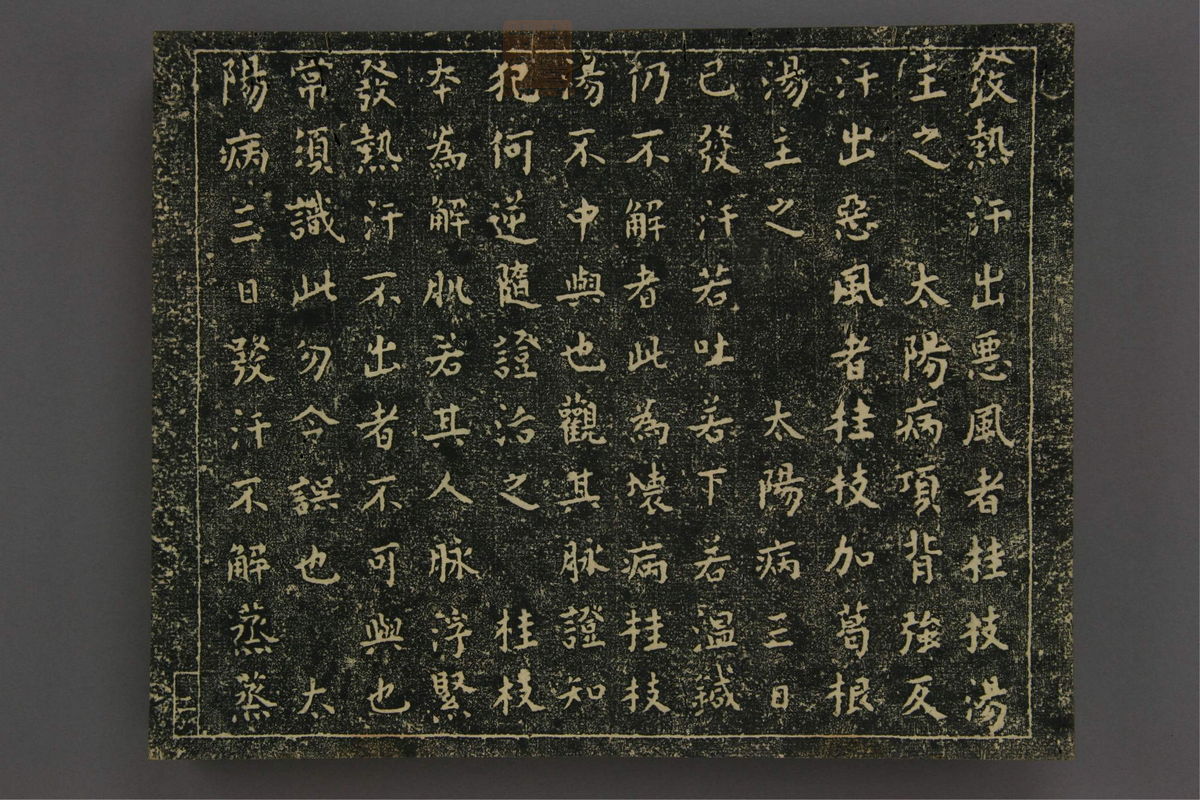 發熱汗出悪風者桂枝湯
主之 太陽病項背強反
汗出惡風者桂枝加葛根
湯主之 太陽病三日
已發汗若吐若下若温鍼
仍不解者此為壊病桂枝
湯不中與也觀其脉證知
犯何逆隨證治之 桂枝
本為解肌若其人脉浮緊
發熱汗不出者不可與也
常須識此勿令誤也 太
陽病三日發汗不解蒸蒸